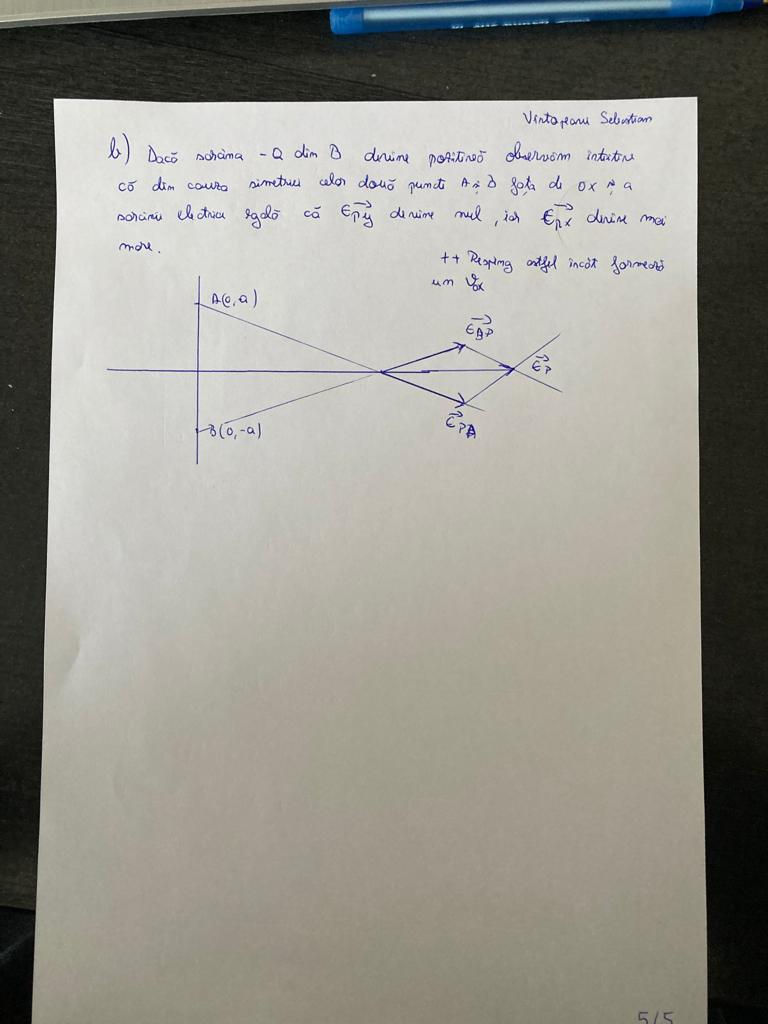 Vintopeanu Sebastian
b) Dacă sarcina -Q din B devine pozitivă observăm intuitiv
că din cauza simetriei celor două puncte A și B față de Ox și a
sarcinii electrice egală că EPy devine nul, iar EPx devine mai
mare.
++ Resping astfel încât formează
un
A(0,a)
EBP
EP
B(0,-a)
EPA
5/5